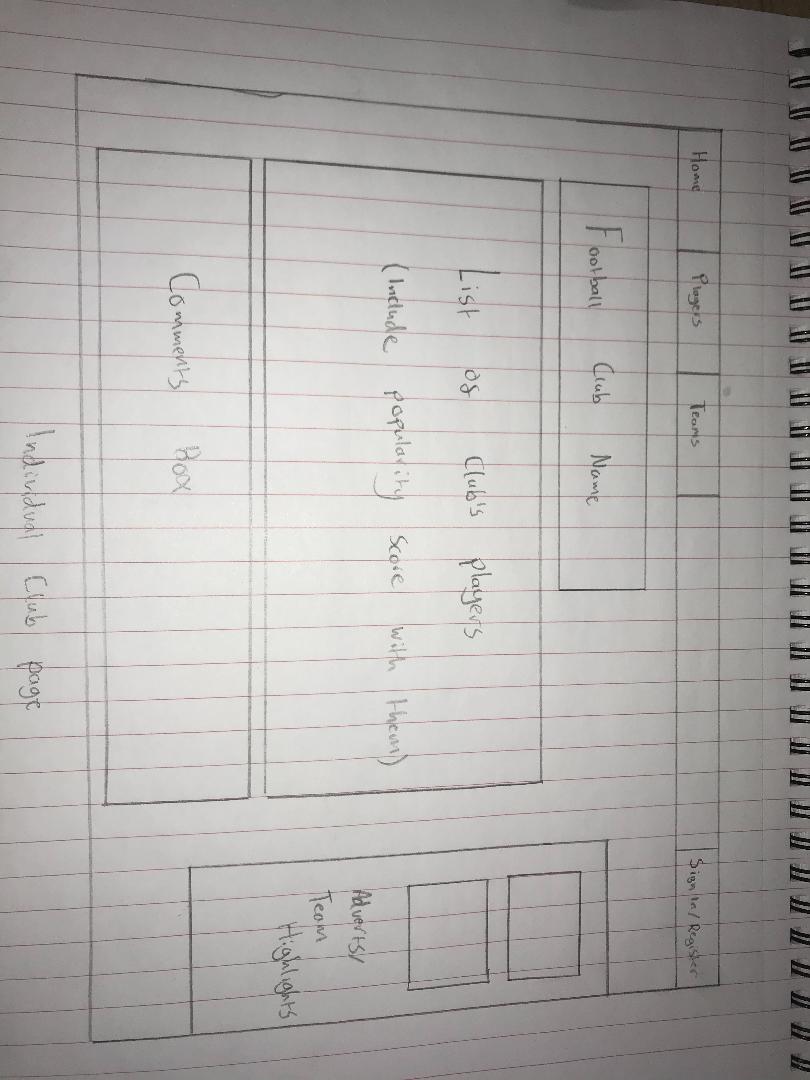 Home
Players
Teams
Sign In/Register
Football Club Name
List of Club's players
(Include popularity score with them)
Comments Box
Adverts/
Team
Highlights
Individual Club page